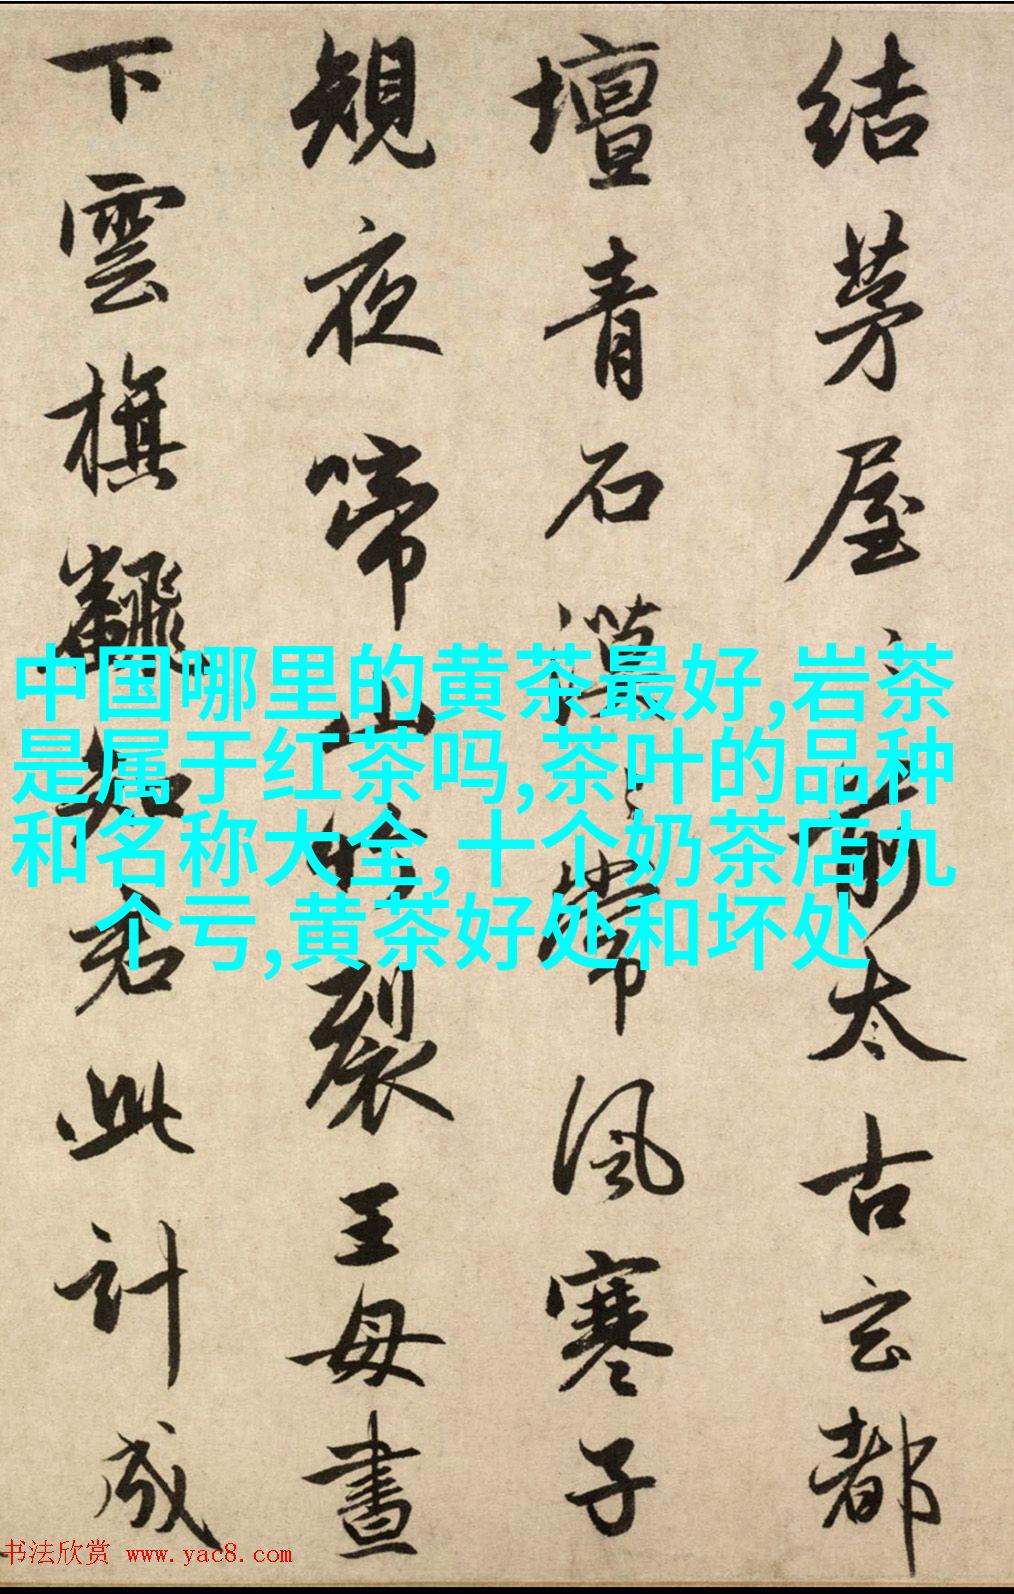 结茅屋〻前太古玄都
壇青石漠〻常風寒子
規夜啼山竹裂王母晝
下雲旗飜知君此計成
中国哪里的黄茶最好,岩茶
是属于红茶吗,茶叶的品种
和名称大全,十个奶茶店九
个亏,黄茶好处和坏处
书法欣赏 www.yac8.com